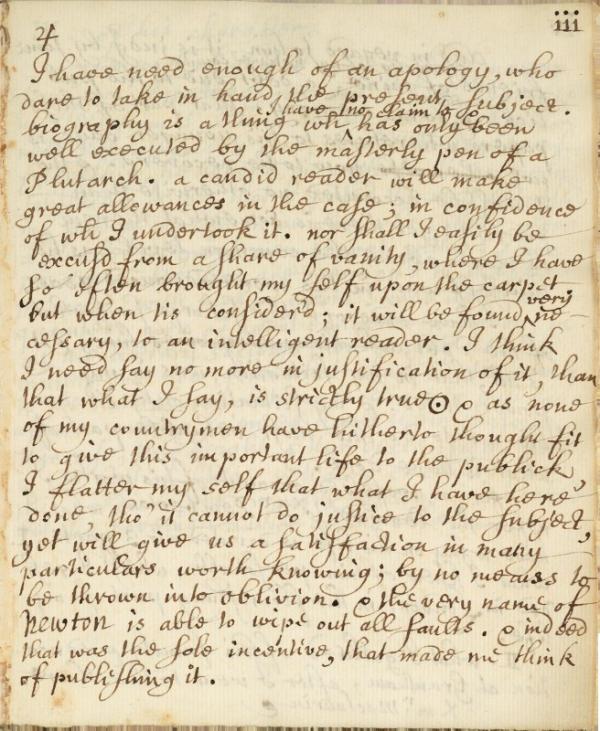 iii
4
I have need enough of an apology, who
dare to take in hand the present subject.
I have no claim to
biography is a thing wh: has only been
well executed by the masterly pen of a
Plutarch. a candid reader will make
great allowances in the case; in confidence
of wh I undertook it. nor shall I easily be
excusd from a share of vanity, where I have
so often brought my self upon the carpet
very
but when tis considerd; it will be found ne-
cessary, to an intelligent reader. I think
I need say no more in justification of it, than
that what I say, is strictly true⊙ & as none
of my countrymen have hitherto thought fit
to give this important life to the publick,
I flatter my self that what I have here
done, tho' it cannot do justice to the subject,
yet will give us a satisfaction in many
particulars worth knowing; by no means to
be thrown into oblivion. & the very name of
Newton is able to wipe out all faults. & indeed
that was the sole incentive, that made me think
of publishing it.